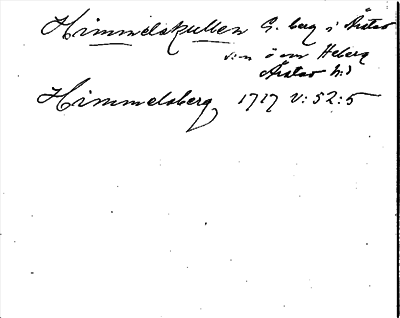 Himmelskullen G. berg i Årstad
s:n ö om Heberg
Årstad hd
Himmelsberg 1717 V:52:5